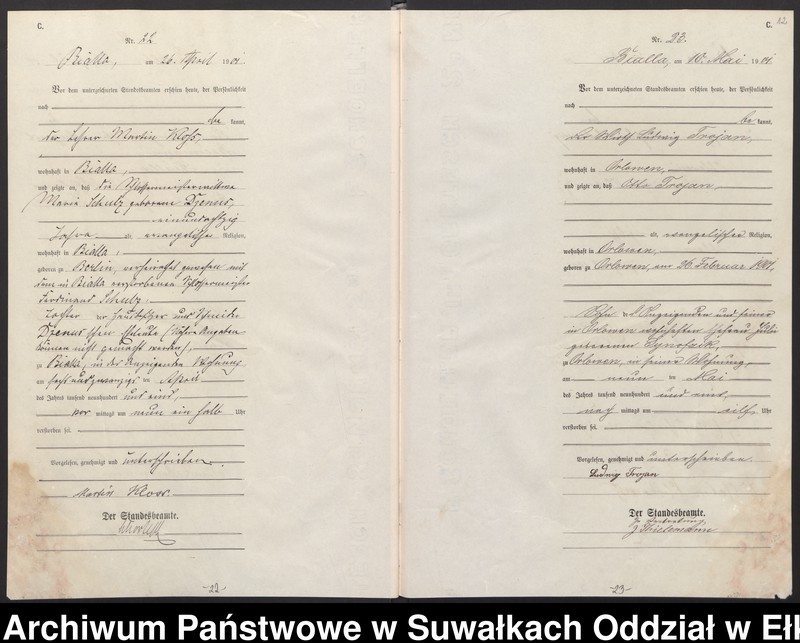 C.
Nr. 22
Bialla, am 26. April 1901.
Vor dem unterzeichneten Standesbeamten erschien heute, der Persönlichkeit
nach
be kannt,
der Lehrer Martin Kloß,
wohnhaft in Bialla,
und zeigte an, daß die Schlossermeisterwittwe
Maria Schulz geborene Dzenus,
einundachtzig
Jahre alt, evangelischer Religion,
wohnhaft in Bialla,
geboren zu Berlin, verheirathet gewesen mit
dem in Bialla verstorbenen Schlossermeister
Ferdinand Schulz.
Tochter der
Dzenus'schen Eheleute (Nähere Angaben
können nicht gemacht werden),
zu Bialla, in des Anzeigenden Wohnung
am sechsundzwanzigsten April
des Jahres tausend neunhundert und eins,
vor mittags um neun ein halb Uhr
verstorben sei.
Vorgelesen, genehmigt und unterschrieben.
Martin Kloss.
Der Standesbeamte.
-22-
C. 32
Nr. 23.
Bialla, am 10. Mai 1901.
Vor dem unterzeichneten Standesbeamten erschien heute, der Persönlichkeit
nach
be kannt,
der Wirth Ludwig Trojan,
wohnhaft in Orlowen,
und zeigte an, daß Otto Trojan,
alt, evangelischer Religion,
wohnhaft in Orlowen,
geboren zu Orlowen, am 26. Februar 1901,
Sohn des Anzeigenden und seiner
in Orlowen wohnhaften Ehefrau
geborenen
zu Orlowen, in seiner Wohnung,
am neun ten Mai
des Jahres tausend neunhundert und eins,
nach mittags um eilf Uhr
verstorben sei.
Vorgelesen, genehmigt und unterschrieben.
Ludwig Trojan
Der Standesbeamte.
In Vertretung
-23-
Archiwum Państwowe w Suwałkach Oddział w Eł